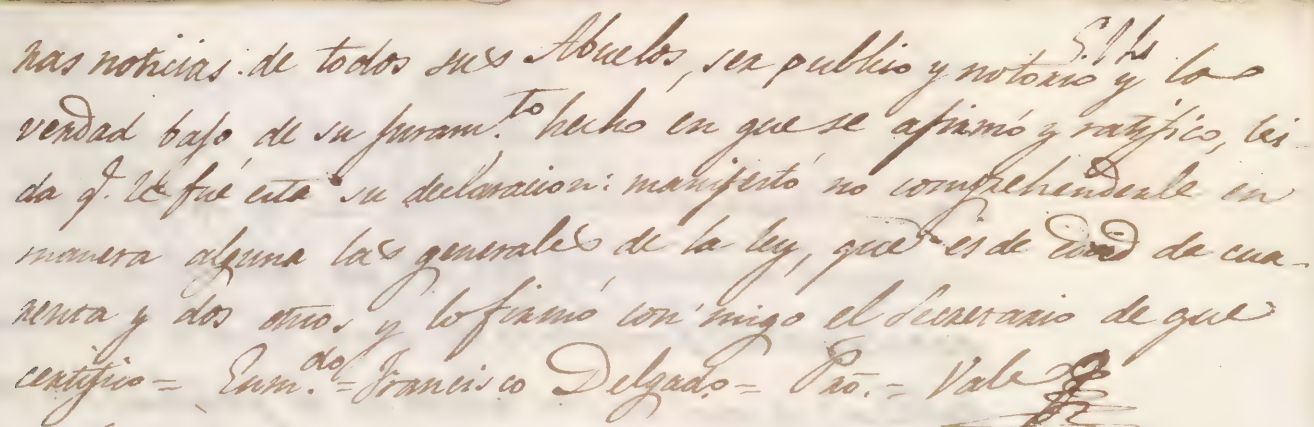 nas noticias de todos sus Abuelos, ser publico y notorio y la
verdad bajo de su juram.to hecho en que se afirmó y ratifico, lei-
da q.e le fué esta su declaracion: manifestó no comprehenderle en
manera alguna las generales de la ley, que es de edad de cua-
renta y dos años, y lo firmó con migo el Secretario de que
certifico = Enm.do = Francisco Delgado = Pro. = Vale